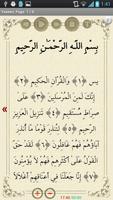 1:41
Yaseen, Page : 1 / 6
بِسْمِ اللَّهِ الرَّحْمَٰنِ الرَّحِيمِ
يس ﴿١﴾ وَالْقُرْآنِ الْحَكِيمِ ﴿٢﴾
إِنَّكَ لَمِنَ الْمُرْسَلِينَ ﴿٣﴾ عَلَىٰ
صِرَاطٍ مُّسْتَقِيمٍ ﴿٤﴾ تَنزِيلَ الْعَزِيزِ
الرَّحِيمِ ﴿٥﴾ لِتُنذِرَ قَوْمًا مَّا أُنذِرَ
آبَاؤُهُمْ فَهُمْ غَافِلُونَ ﴿٦﴾ لَقَدْ حَقَّ
الْقَوْلُ عَلَىٰ أَكْثَرِهِمْ فَهُمْ لَا يُؤْمِنُونَ
﴿٧﴾ إِنَّا جَعَلْنَا فِي أَعْنَاقِهِمْ أَغْلَالًا